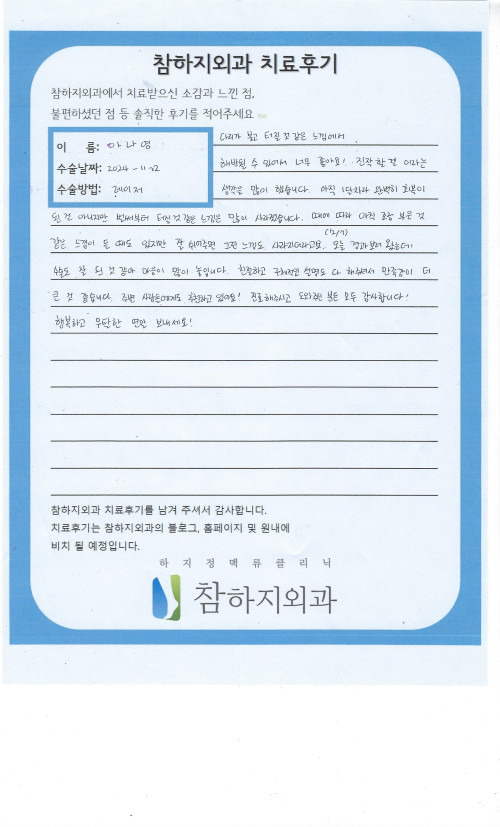 참하지외과 치료후기
참하지외과에서 치료받으신 소감과 느낀 점,
불편하셨던 점 등 솔직한 후기를 적어주세요
이 름:
수술날짜: 2024-11-22
수술방법: 레이저
다리가 붓고 터질 것 같은 느낌에서
해방될 수 있어서 너무 좋아요! 진작 할 걸 이라는
생각을 많이 했습니다. 아직 1달차라 완벽히 회복이
된 것 아니지만 벌써부터 터질 것 같은 느낌은 많이 사라졌습니다. 때에 따라 아직 조금 부은 것
같은 느낌이 든 때도 있지만 잘 쉬어주면 그런 느낌도 사라지더라고요. 오늘 경과 보러 왔는데
수술도 잘 된 것 같아 마음이 많이 놓입니다. 친절하고 구체적인 설명도 다 해주셔서 만족감이 더
큰 것 같습니다. 주변 사람들에게도 추천하고 있어요! 진료해주시고 도와주신 분들 모두 감사합니다!
행복하고 무탈한 연말 보내세요!
참하지외과 치료후기를 남겨 주셔서 감사합니다.
치료후기는 참하지외과의 블로그, 홈페이지 및 원내에
비치 될 예정입니다.
하지정맥류클리닉
참하지외과